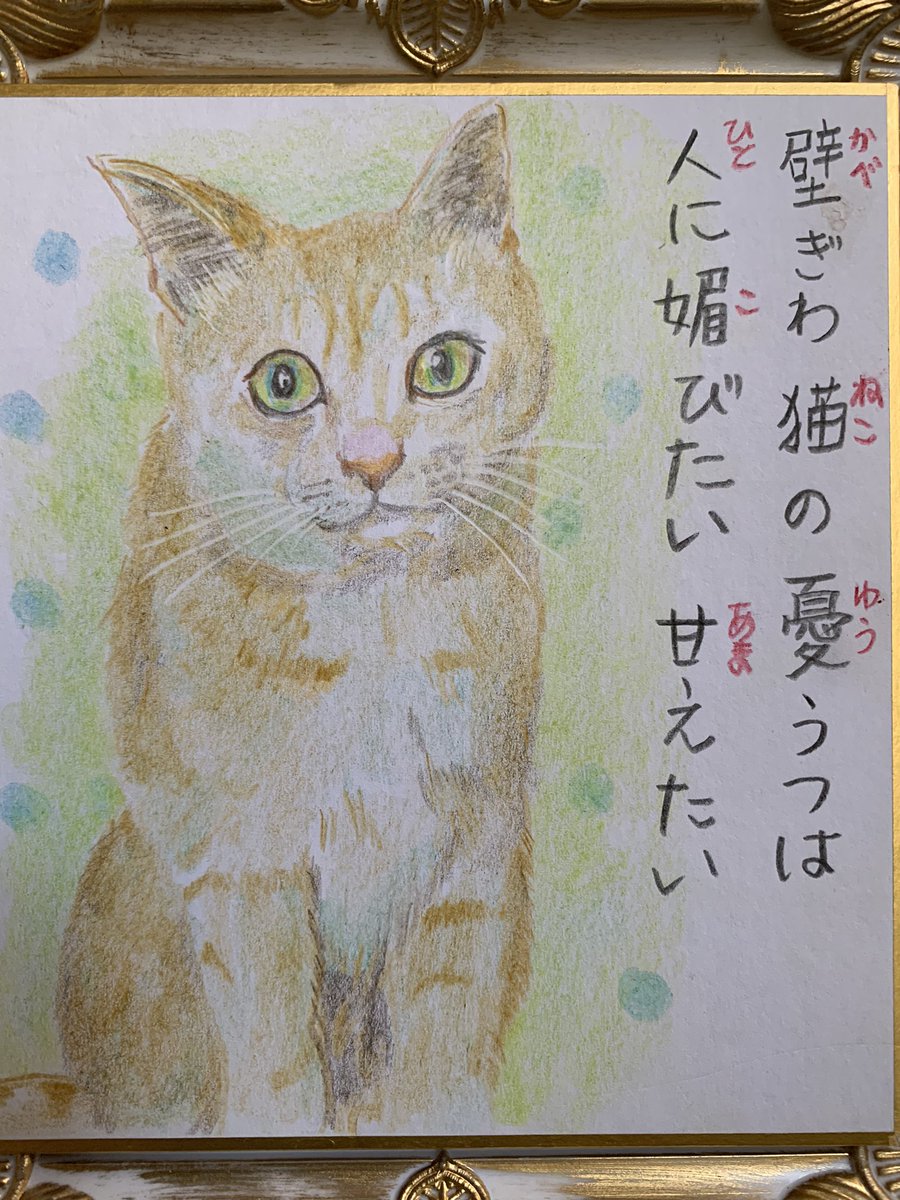 壁ぎわ 猫の憂うつは
かべ ねこ ゆう
人に媚びたい 甘えたい
ひと こ あま